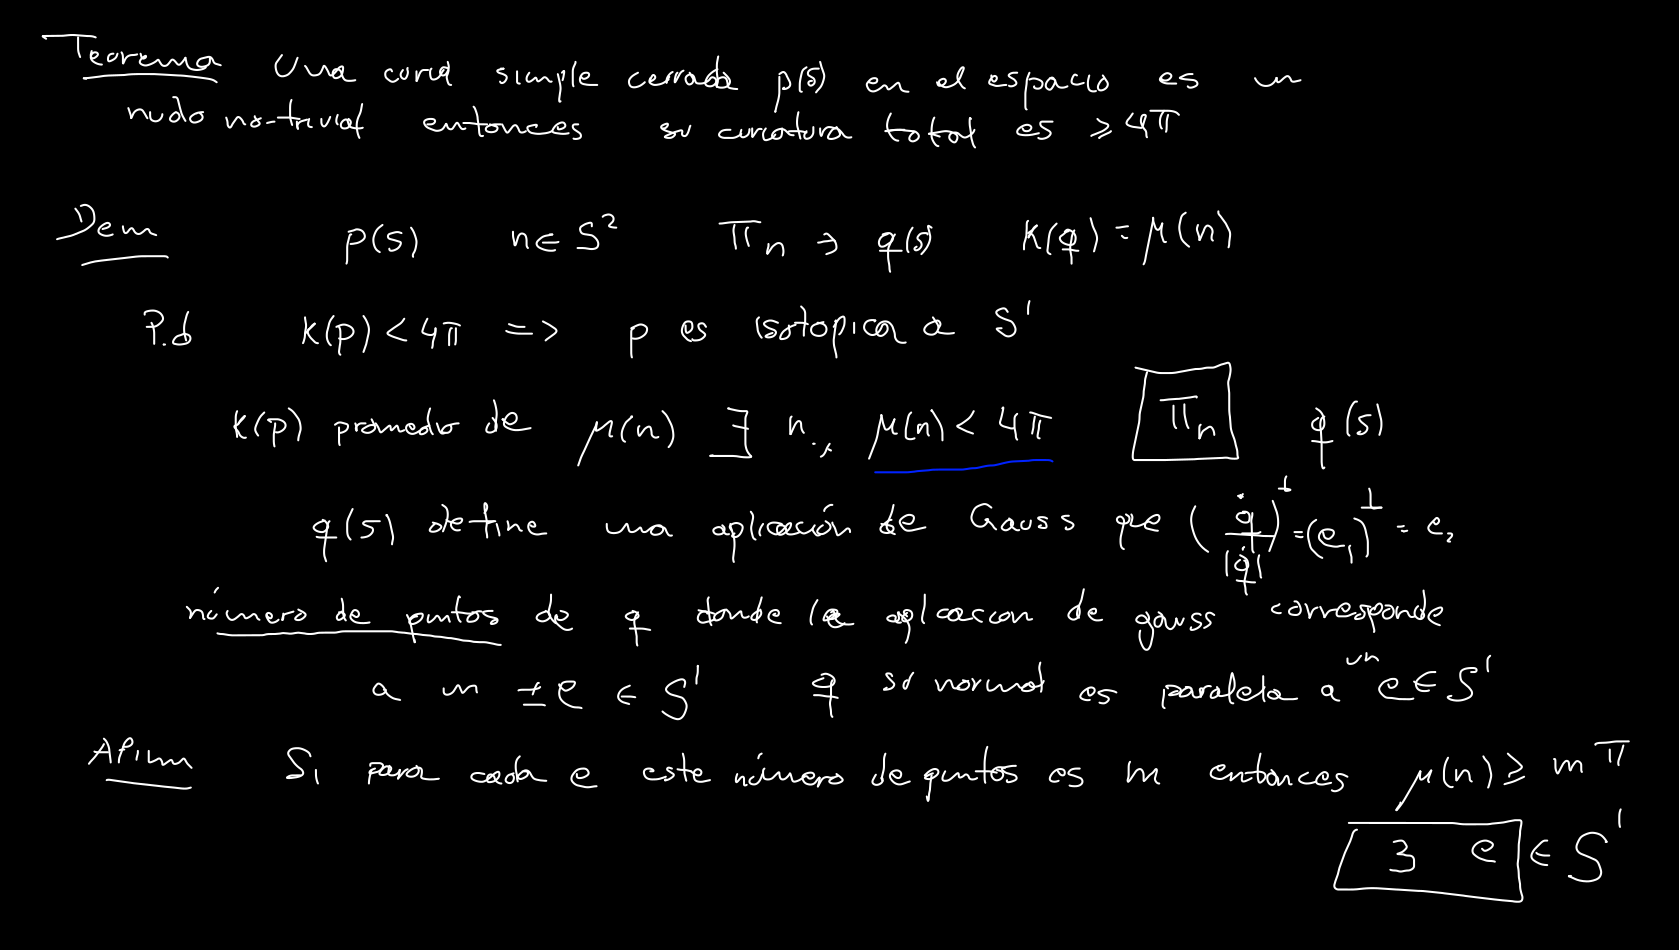 Teorema Una curva simple cerrada p(s) en el espacio es un
nudo no-trivial entonces su curvatura total es ≥ 4π
Dem p(s) n ∈ S² Π_n → q(s) K(q) = μ(n)
P.d K(p) < 4π => p es isotopica a S¹
K(p) promedio de μ(n) ∃ n., μ(n) < 4π Π_n q(s)
q(s) define una aplicación de Gauss que (q̇/|q̇|)^⊥ = (e₁)^⊥ = e₂
número de puntos de q donde la aplicacion de gauss corresponde
a un ±e ∈ S¹ q su normal es paralela a un e ∈ S¹
Afirm Si para cada e este número de puntos es m entonces μ(n) ≥ m π
∃ e ∈ S¹